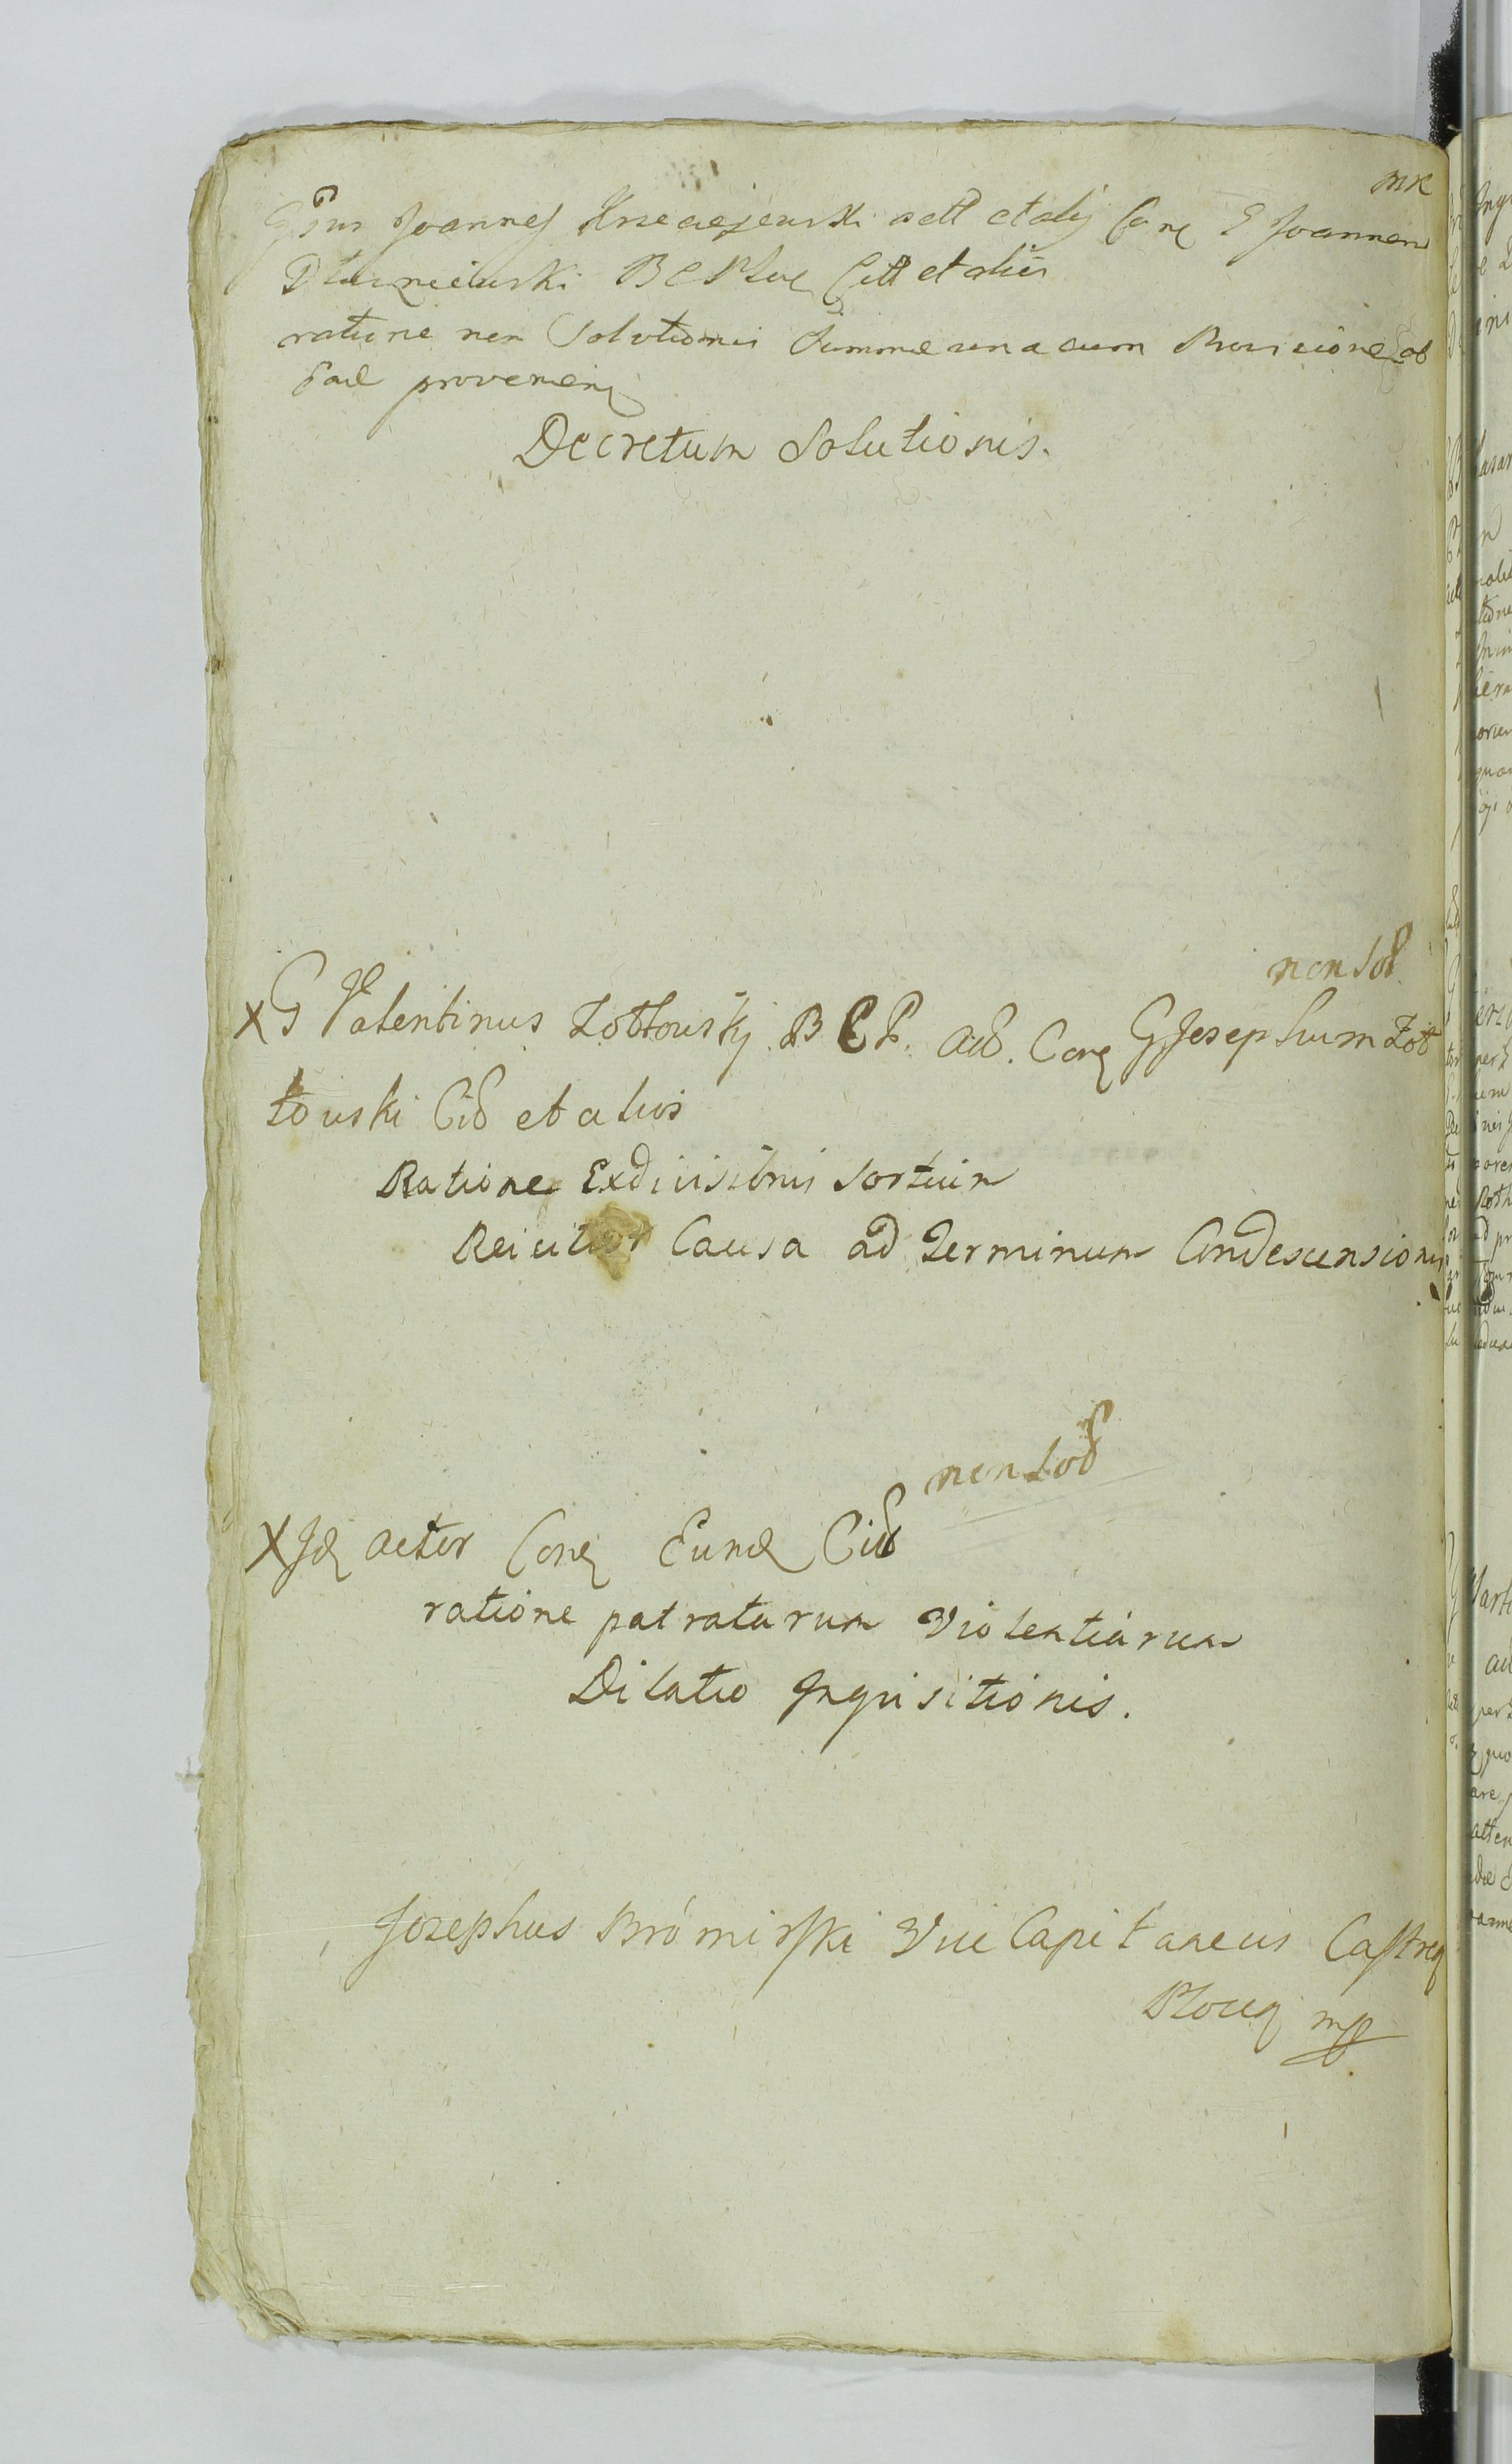 mK
Gsus Joannes Krzeczejewski actt et alij Con G Joannem
Dłuzniewski B C Ploc Citt et alios
ratione non Solutionis Summæ una cum Provisione ab
Ead provenien
Decretum Solutionis.
non sol
X G Valentinus Zołtowskÿ B C P. act. Con G Josephum Zoł
towski Citt et alios
Ratione Exdivisionis Sortium
Reicitur Causa ad Terminum Condescensionis
non sol
X Id actor Con Eund Citt
ratione patratarum Violentiarum
Dilatio Inquisitionis.
Josephus Brómirski Vice Capitaneus Castren
Plocen mp